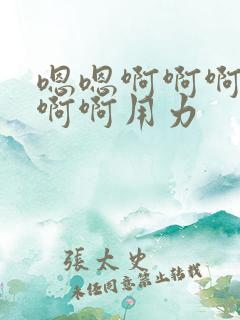 嗯嗯啊啊啊
啊啊用力
張太史
未经同意禁止转载